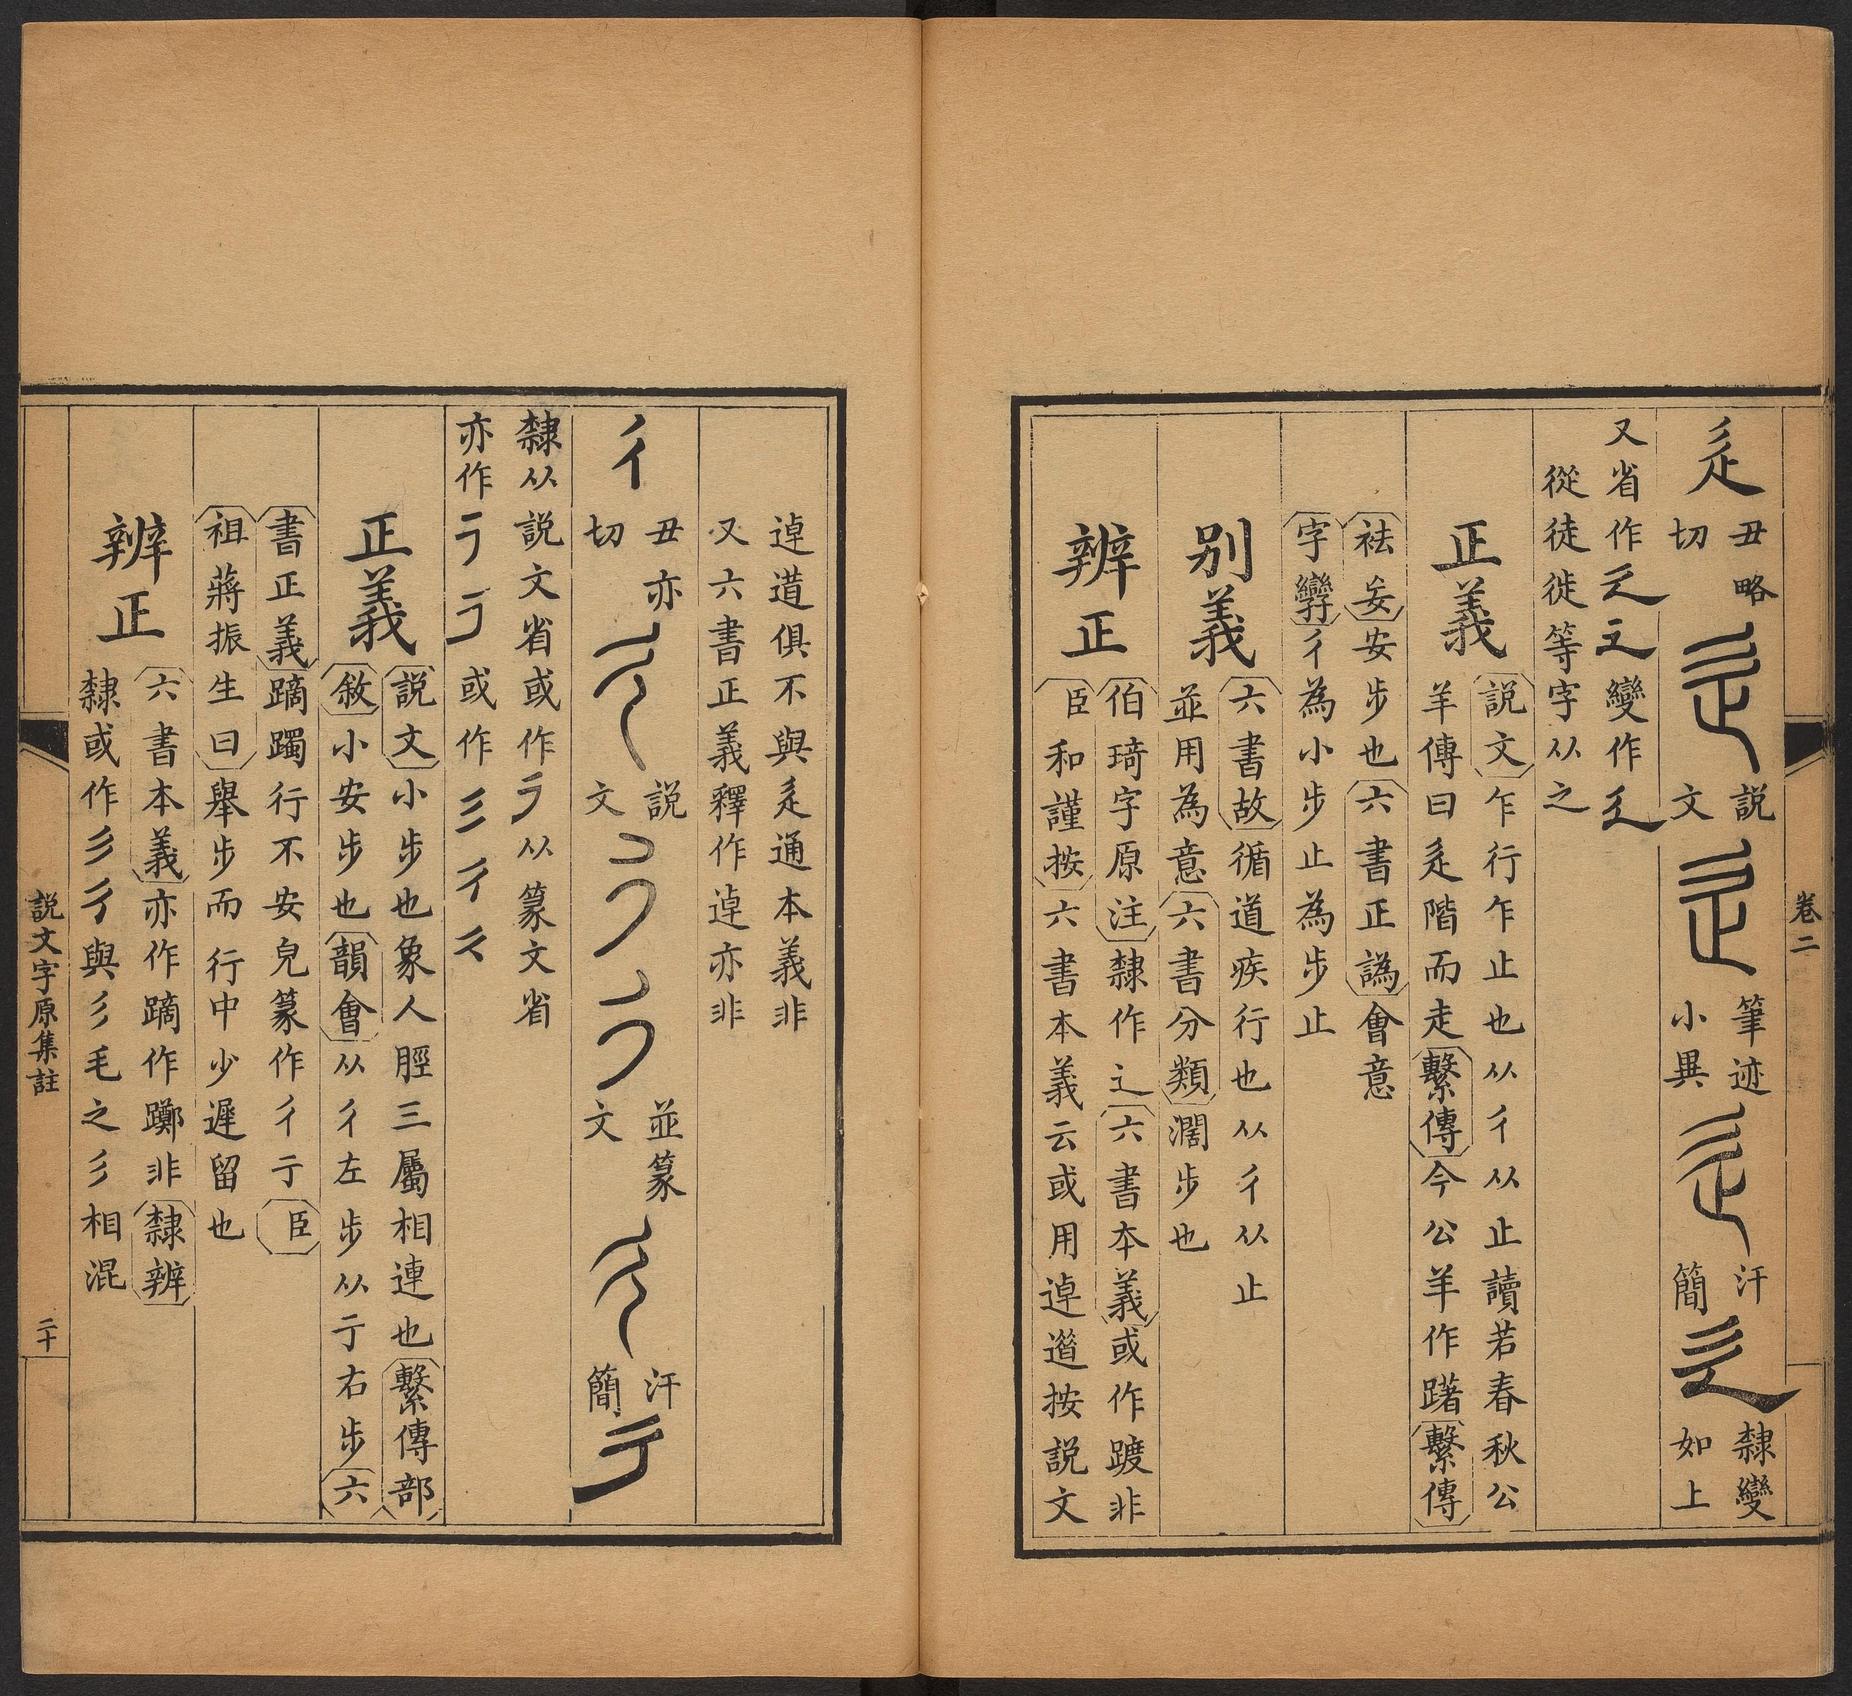 卷二
辵 丑略切 說文 筆迹小異 汗簡 隸變如上
又省作辶 變作廴
從徒徙等字从之
正義 說文乍行乍止也从彳从止讀若春秋公
羊傳曰辵階而走繫傳今公羊作躇繫傳
祛妄安步也六書正譌會意
字孿彳為小步止為步止
別義 六書故循道疾行也从彳从止
並用為意六書分類濶步也
辨正 伯琦字原注隸作辶六書本義或作踱非
臣和謹按六書本義云或用逴按說文
逴俱不與辵通本義非
又六書正義釋作逴亦非
彳 丑亦切 說文 並篆文 汗簡
隸从說文省或作 从篆文省
亦作 或作
正義 說文小步也象人脛三屬相連也繫傳部
敘小安步也韻會从彳左步从亍右步六
書正義蹢躅行不安皃篆作彳亍臣
祖蔣振生曰舉步而行中少遲留也
辨正 六書本義亦作蹢作躑非隸辨
隸或作 與彡毛之彡相混
說文字原集註
二十